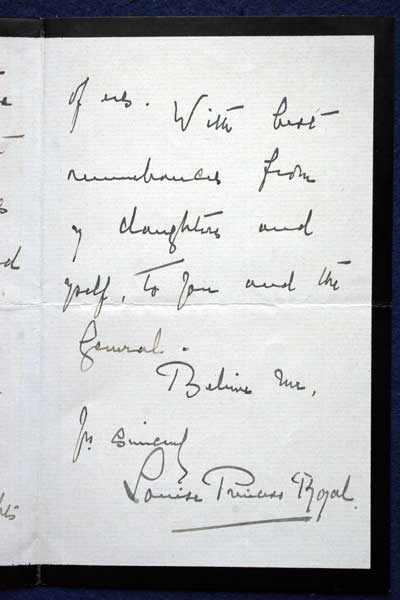 of us. With best
remembrances from
my daughters and
myself, to you and the
General.
Believe me,
Yrs sincerely
Louise Princess Royal.